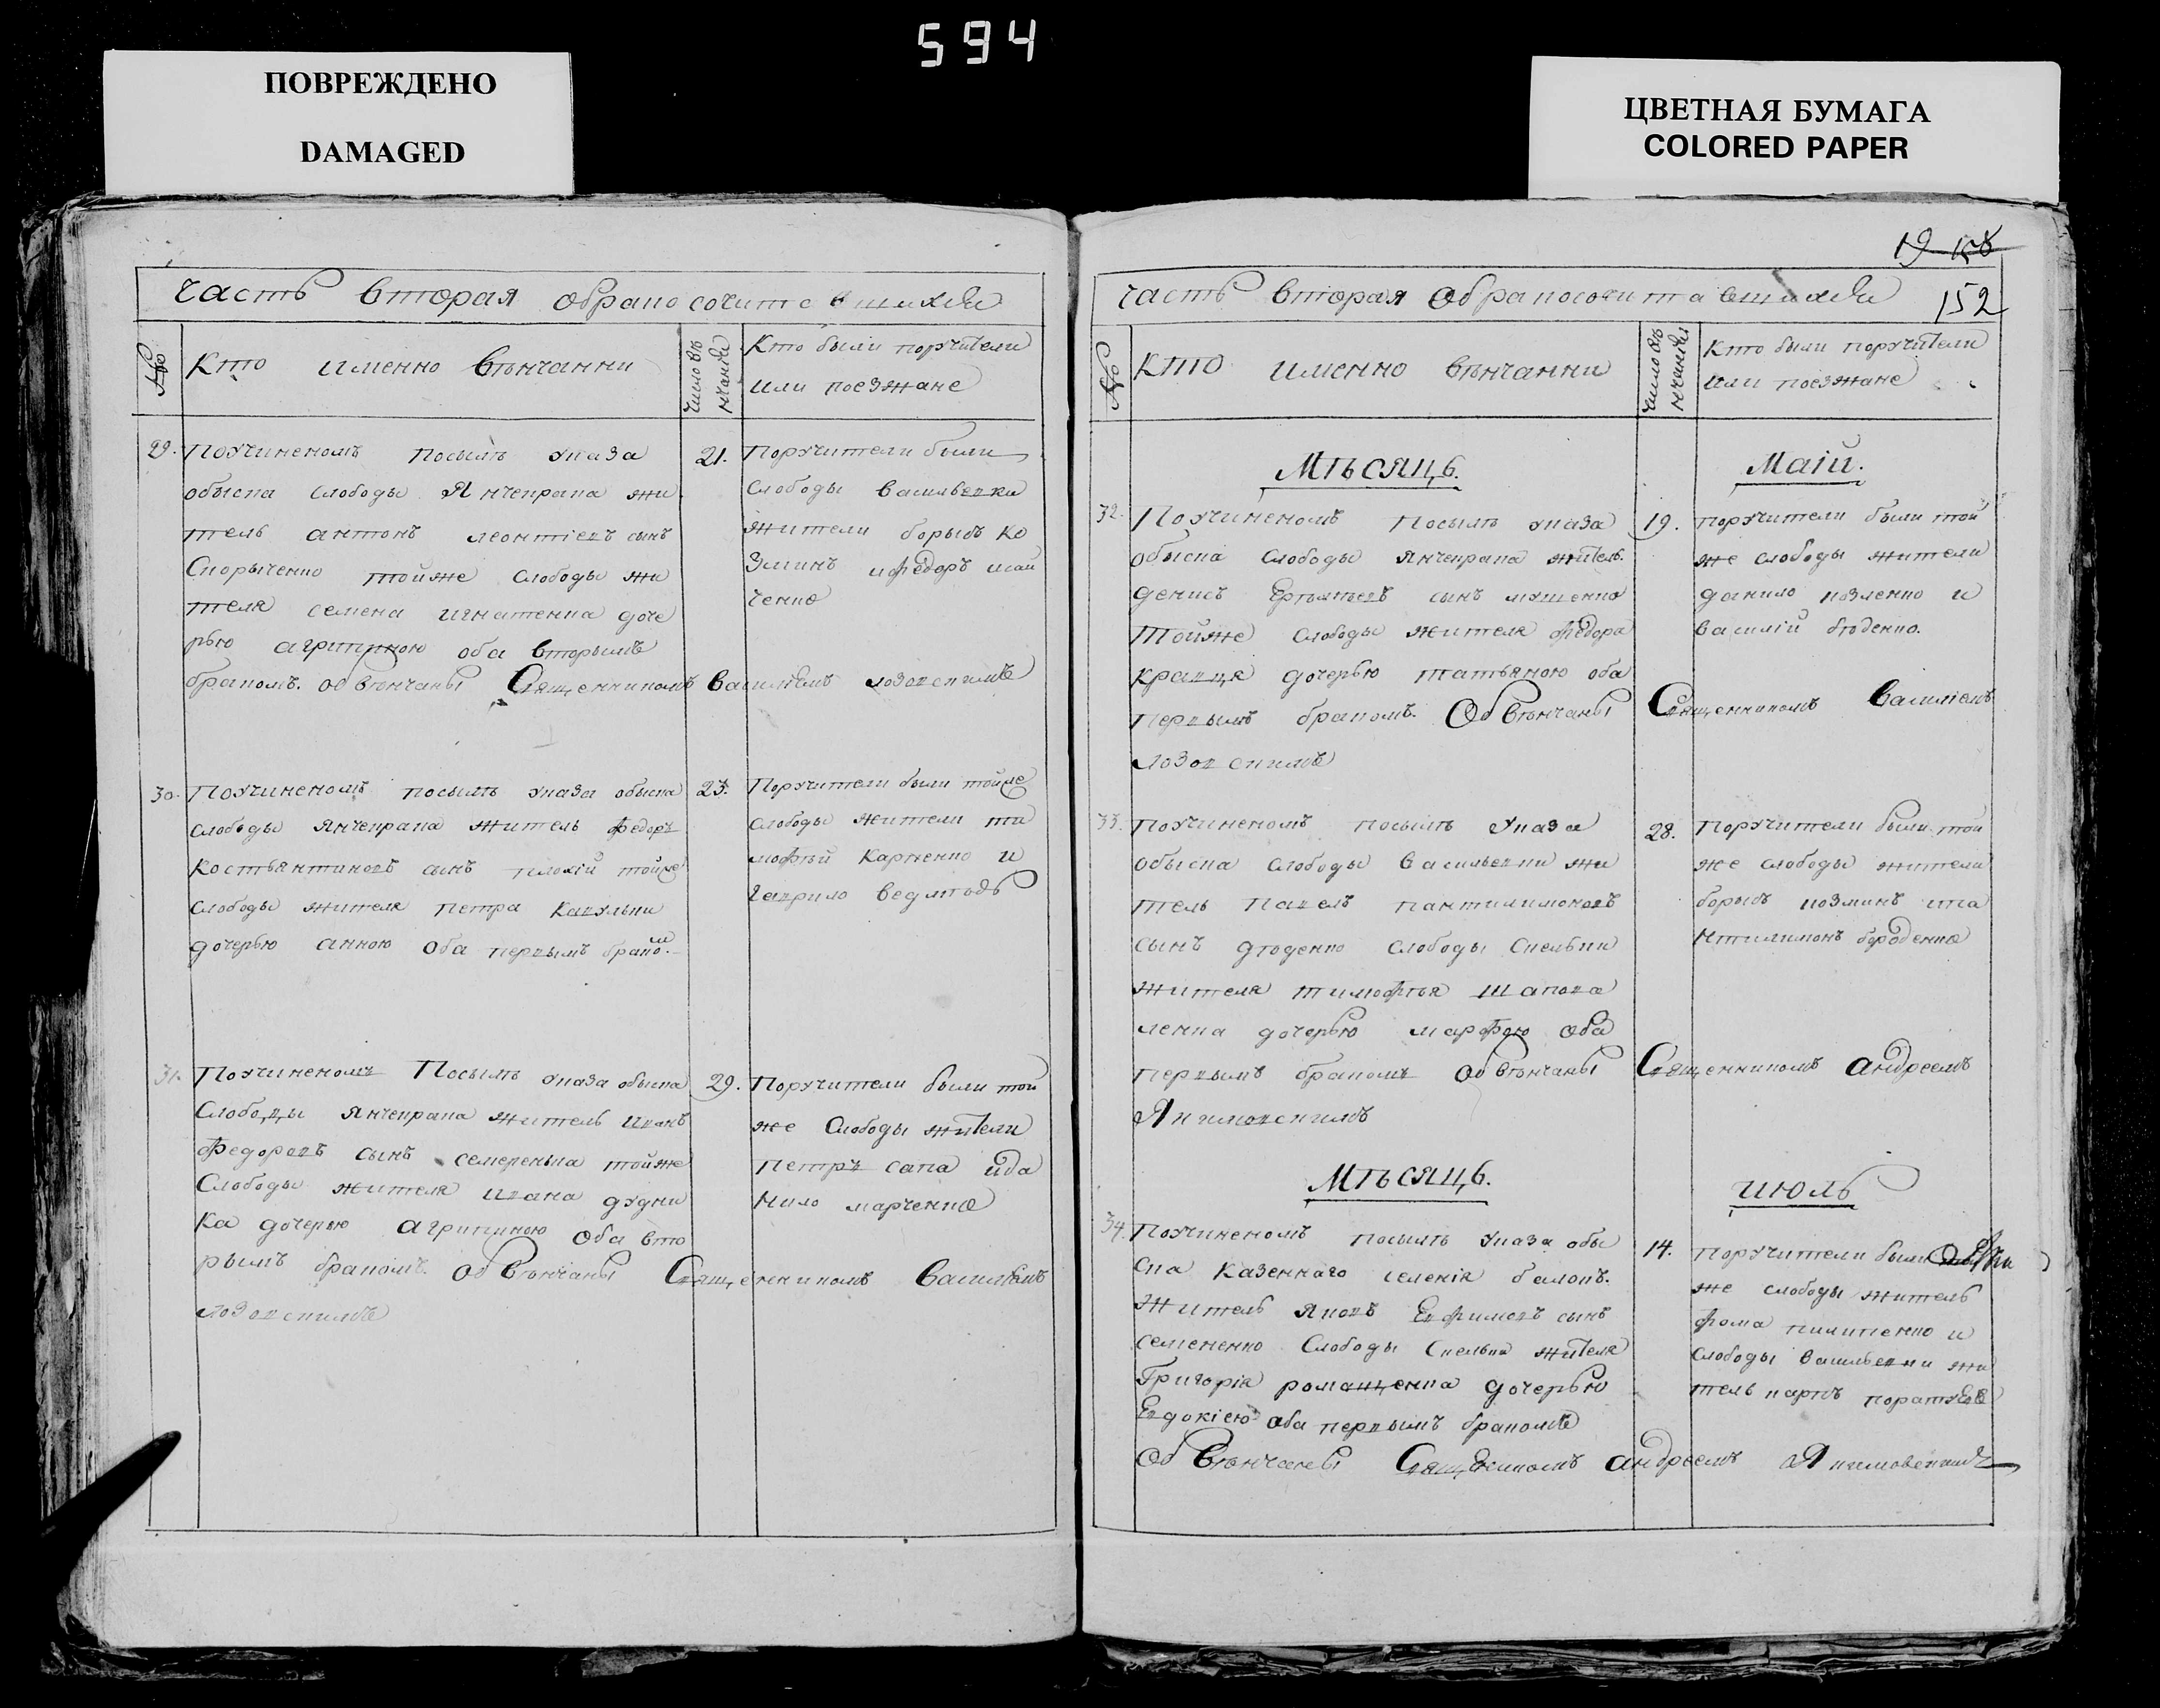 594
ПОВРЕЖДЕНО
DAMAGED
ЦВЕТНАЯ БУМАГА
COLORED PAPER
часть вторая обракосочитавшихся
№
Кто именно венчанни
Число вѣнчанія
Кто были поручители
или поезжане
29.
По учиненомъ посылъ указа
обыска слободы Янчекрака жи
тель антонъ леонтіевъ сынъ
тойже слободы жи
теля семена игнатенка доче
рью агрипиною оба вторымъ
бракомъ. обвѣнчаны Священникомъ василіемъ лозовскимъ
21.
Поручители были
слободы васильевки
жители борысъ ко
зминъ ифедоръ исай
ченко
30.
По учиненомъ посылъ указа обыска
слободы янчекрака житель федоръ
костьянтиновъ сынъ тойже
слободы жителя петра
дочерью анною оба первымъ бракомъ.
23.
Поручители были тойже
слободы жители ти
мофѣй карпенко и
гаврило ведмѣдь
31.
По учиненомъ Посылъ указа обыска
Слободы янчекрака житель иванъ
федоровъ сынъ семеренька тойже
Слободы жителя ивана дудни
ка дочерью агрипиною оба вто
рымъ бракомъ. обвѣнчаны Священникомъ василіемъ
лозовскимъ
29.
Поручители были той
же Слободы жители
петръ сапа ида
нило марченко
19 158
152
часть вторая обракосочитавшихся
№
Кто именно вѣнчанни
Число вѣнчанія
Кто были поручители
или поезжане
Мѣсяцъ. Маій.
32.
По учиненомъ посылъ указа
обыска слободы янчекрака житель
денисъ сынъ
тойже слободы жителя федора
кравця дочерью татьяною оба
первымъ бракомъ. Обвѣнчаны Священникомъ василіемъ
лозовскимъ
19.
поручители были той
же слободы жители
данило козленко и
василій бѣденко.
33.
По учиненомъ посылъ указа
обыска слободы васильевки жи
тель павелъ пантилимоновъ
сынъ слободы скельки
жителя тимофѣя шапова
ленка дочерью марфою оба
первымъ бракомъ обвѣнчаны Священникомъ андреемъ
Якимовскимъ
28.
Поручители были той
же слободы жители
борысъ козминъ ипа
нтилимонъ бороденко
Мѣсяцъ. июль
34.
По учиненомъ посылъ указа обы
ска казеннаго селенія балокъ.
житель яковъ Евфимовъ сынъ
семененко слободы скельки жителя
Григорія романценка дочерью
Евдокіею оба первымъ бракомъ
обвѣнчаны Священникомъ андреемъ Якимовскимъ
14.
поручители были
же слободы житель
фома пилипенко и
слободы васильевки жи
тель карпъ